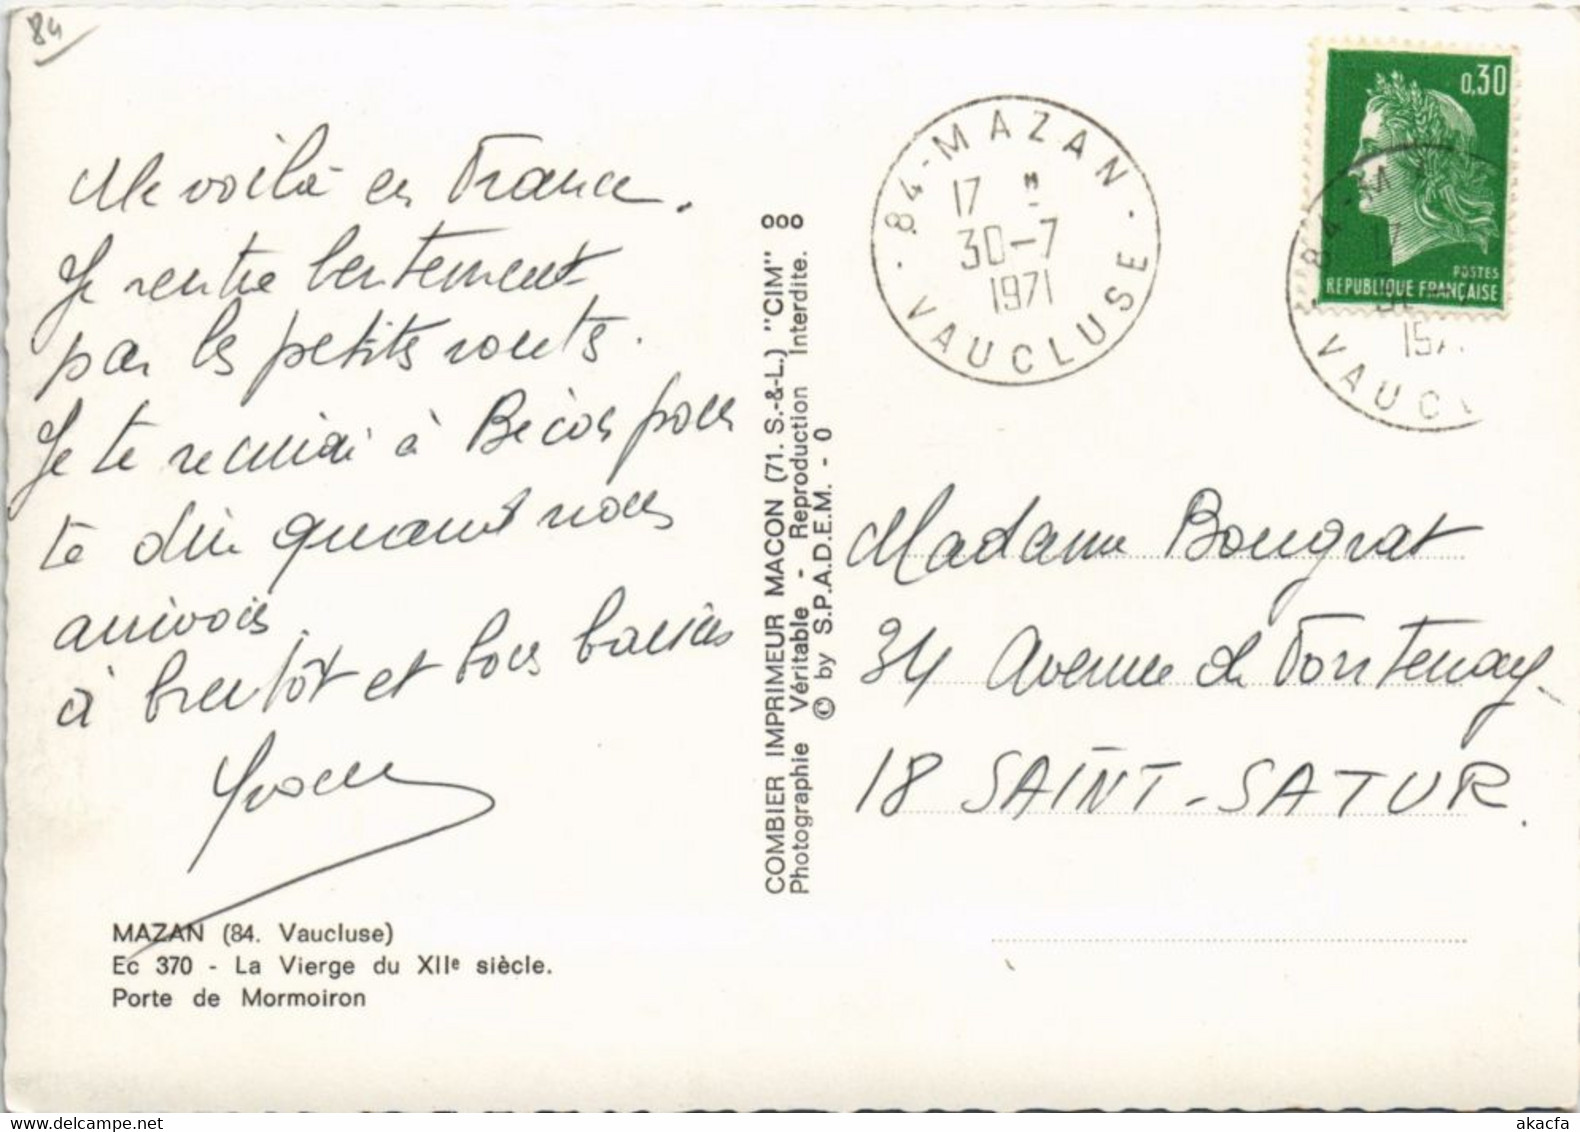 84
Me voilà en France.
Je rentre lentement
par les petits routs.
Je te à pour
te dire quand nous
arrivois.
à bientôt et bons baisers
MAZAN (84. Vaucluse)
Ec 370 - La Vierge du XIIe siècle.
Porte de Mormoiron
COMBIER IMPRIMEUR MACON (71. S.-&-L.) "CIM"
Photographie Véritable - Reproduction Interdite.
© by S.P.A.D.E.M. - 0
84 - MAZAN
17 H
30-7
1971
VAUCLUSE
0,30
POSTES
REPUBLIQUE FRANÇAISE
84-M
17
VAUC
Madame Bougrat
34 Avenue de Fontenay
18 SAINT-SATUR.
akacfa